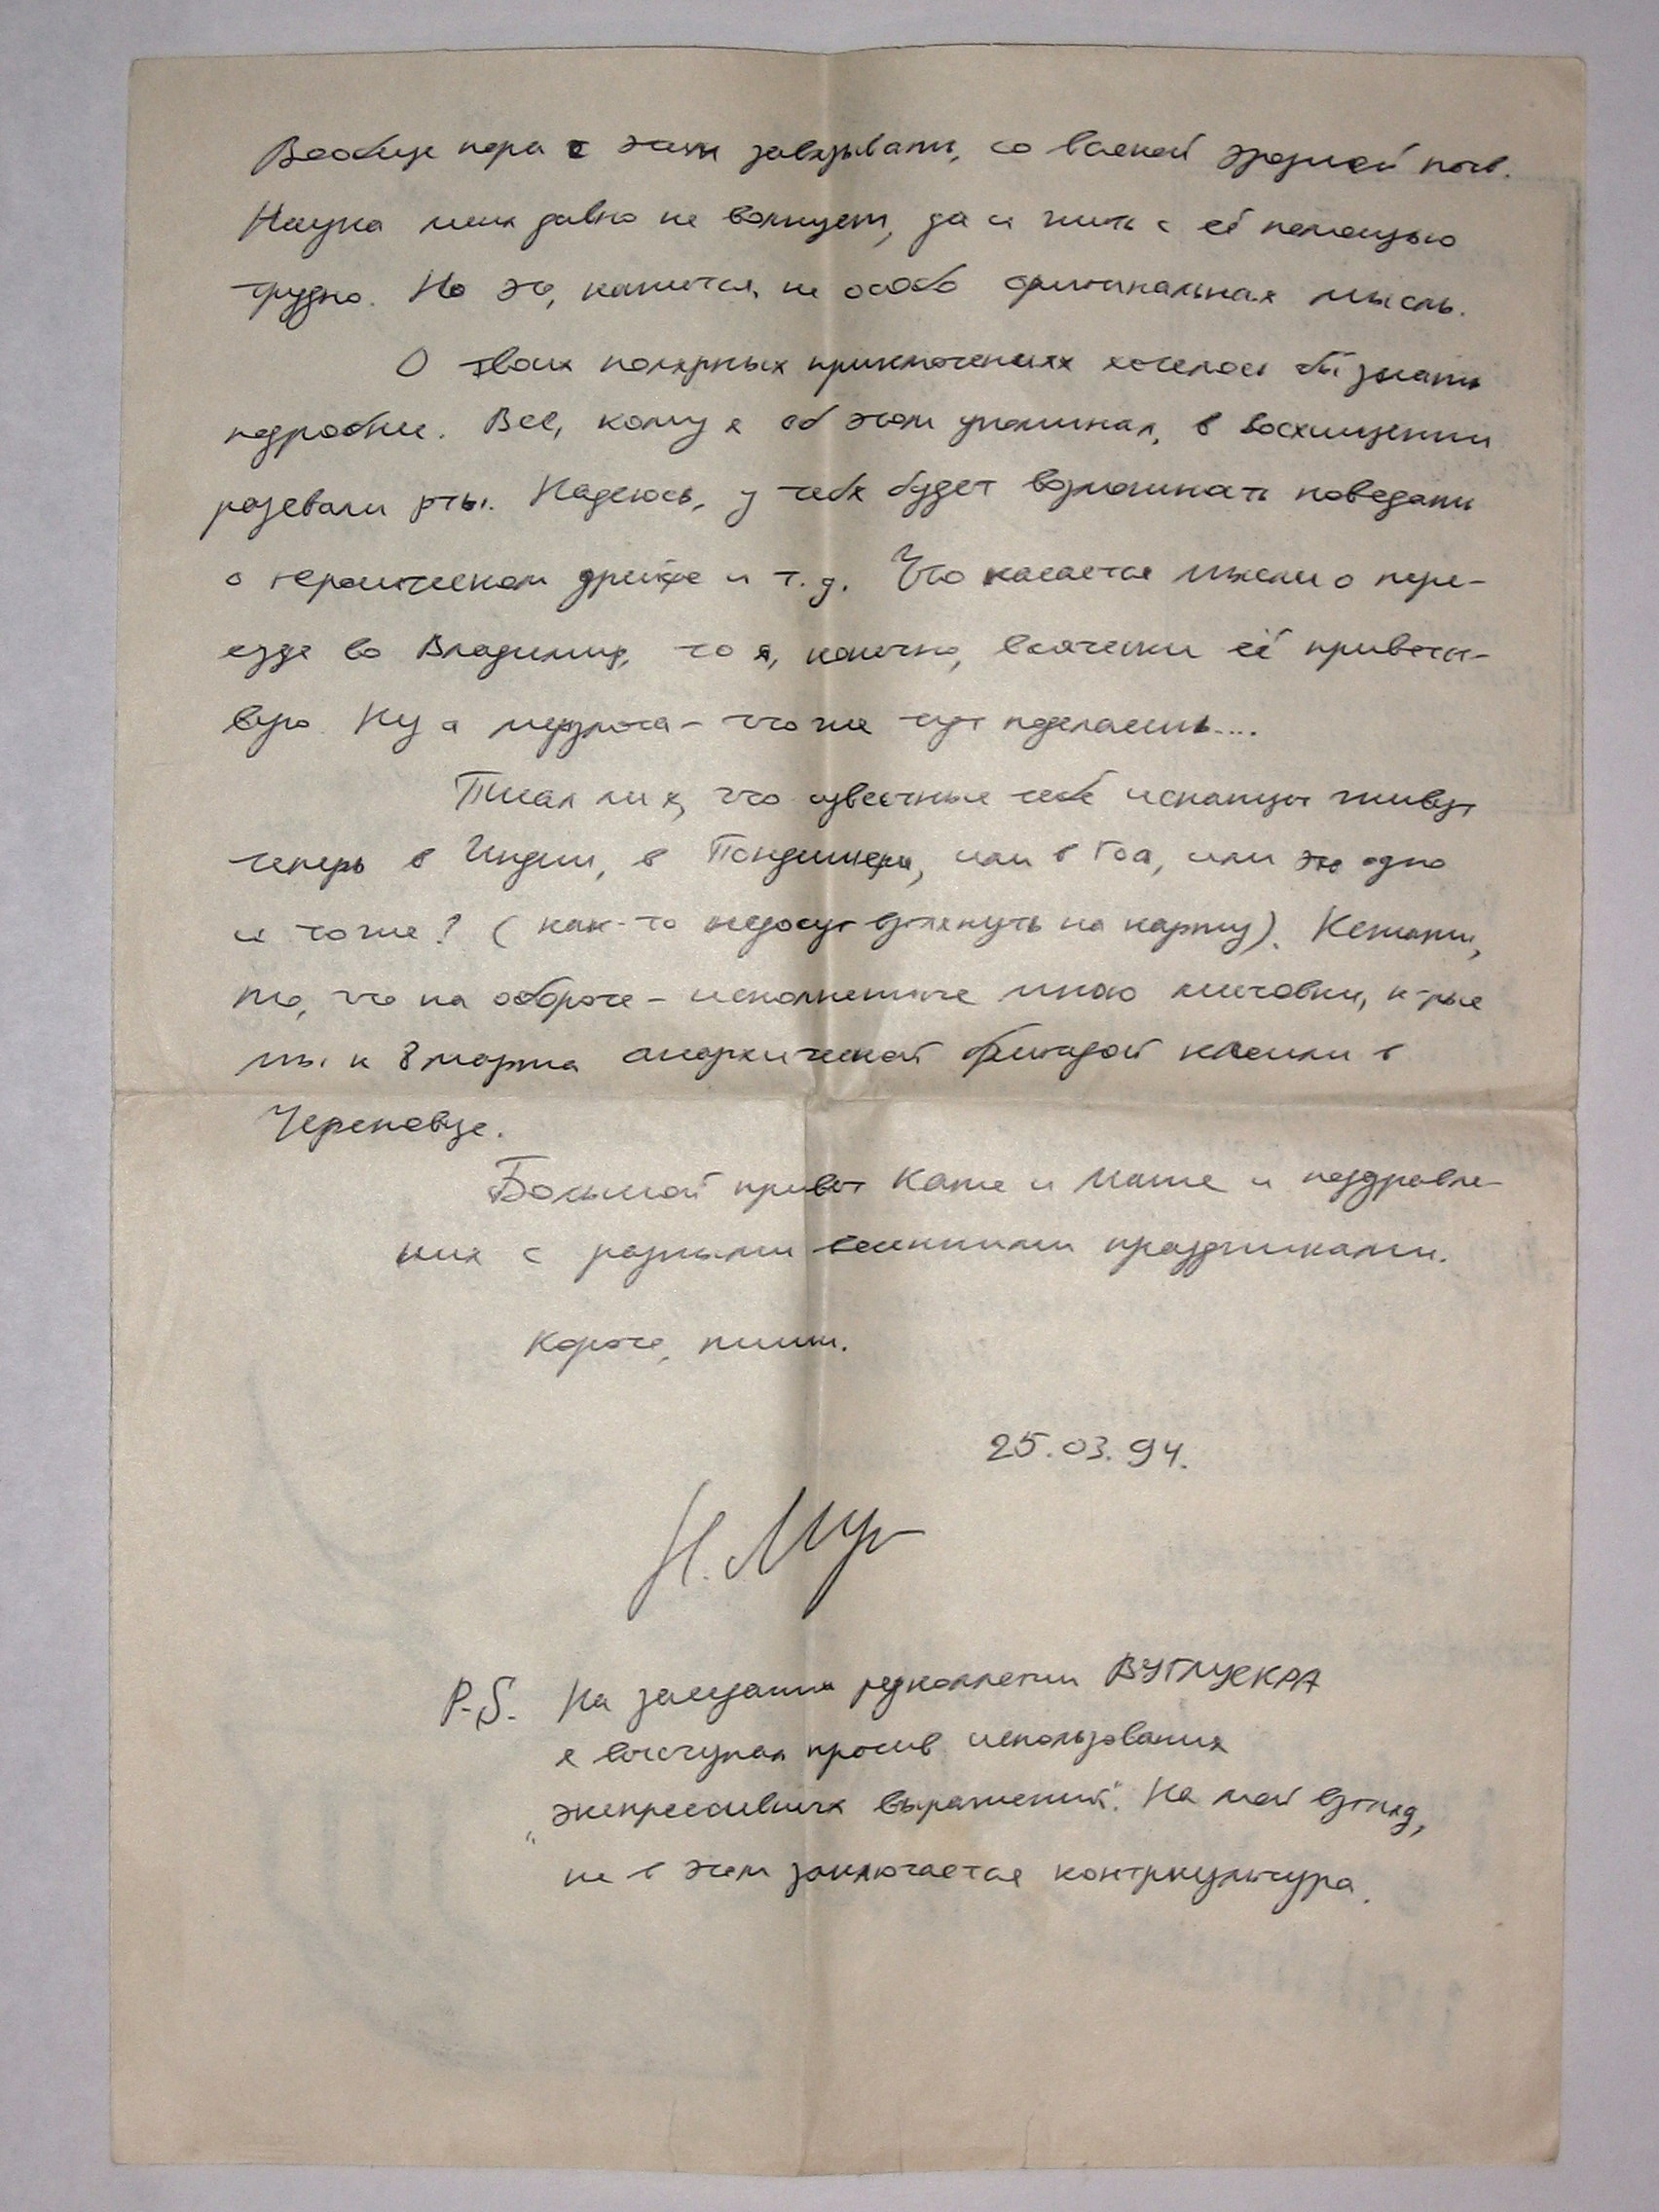 Вообще пора с этим завязывать, со всякой эрозией почв.
Наука меня давно не волнует, да и жить с её помощью
трудно. Но это, кажется, не особо оригинальная мысль.
О твоих полярных приключениях хотелось бы знать
подробнее. Все, кому я об этом упоминал, в восхищении
разевали рты. Надеюсь, у тебя будет возможность поведать
о героическом дрейфе и т.д. Что касается мысли о пере-
езде во Владимир, то я, конечно, всячески её приветст-
вую. Ну а мерзлота - что же тут поделаешь....
Писал ли я, что известные тебе испанцы живут
теперь в Индии, в Пондишери, или в Гоа, или это одно
и то же? (как-то недосуг взглянуть на карту). Кстати,
то, что на обороте - исполненные мною листовки, к-рые
мы к 8 марта анархической бригадой клеили в
Череповце.
Большой привет Кате и Маше и поздравле-
ния с разными весенними праздниками.
Короче, пиши.
25.03.94.
Н. Мур
P.S. На заседании редколлегии ВУГЛУСКРА
я выступал против использования
„экспрессивных выражений". На мой взгляд,
не в этом заключается контркультура.